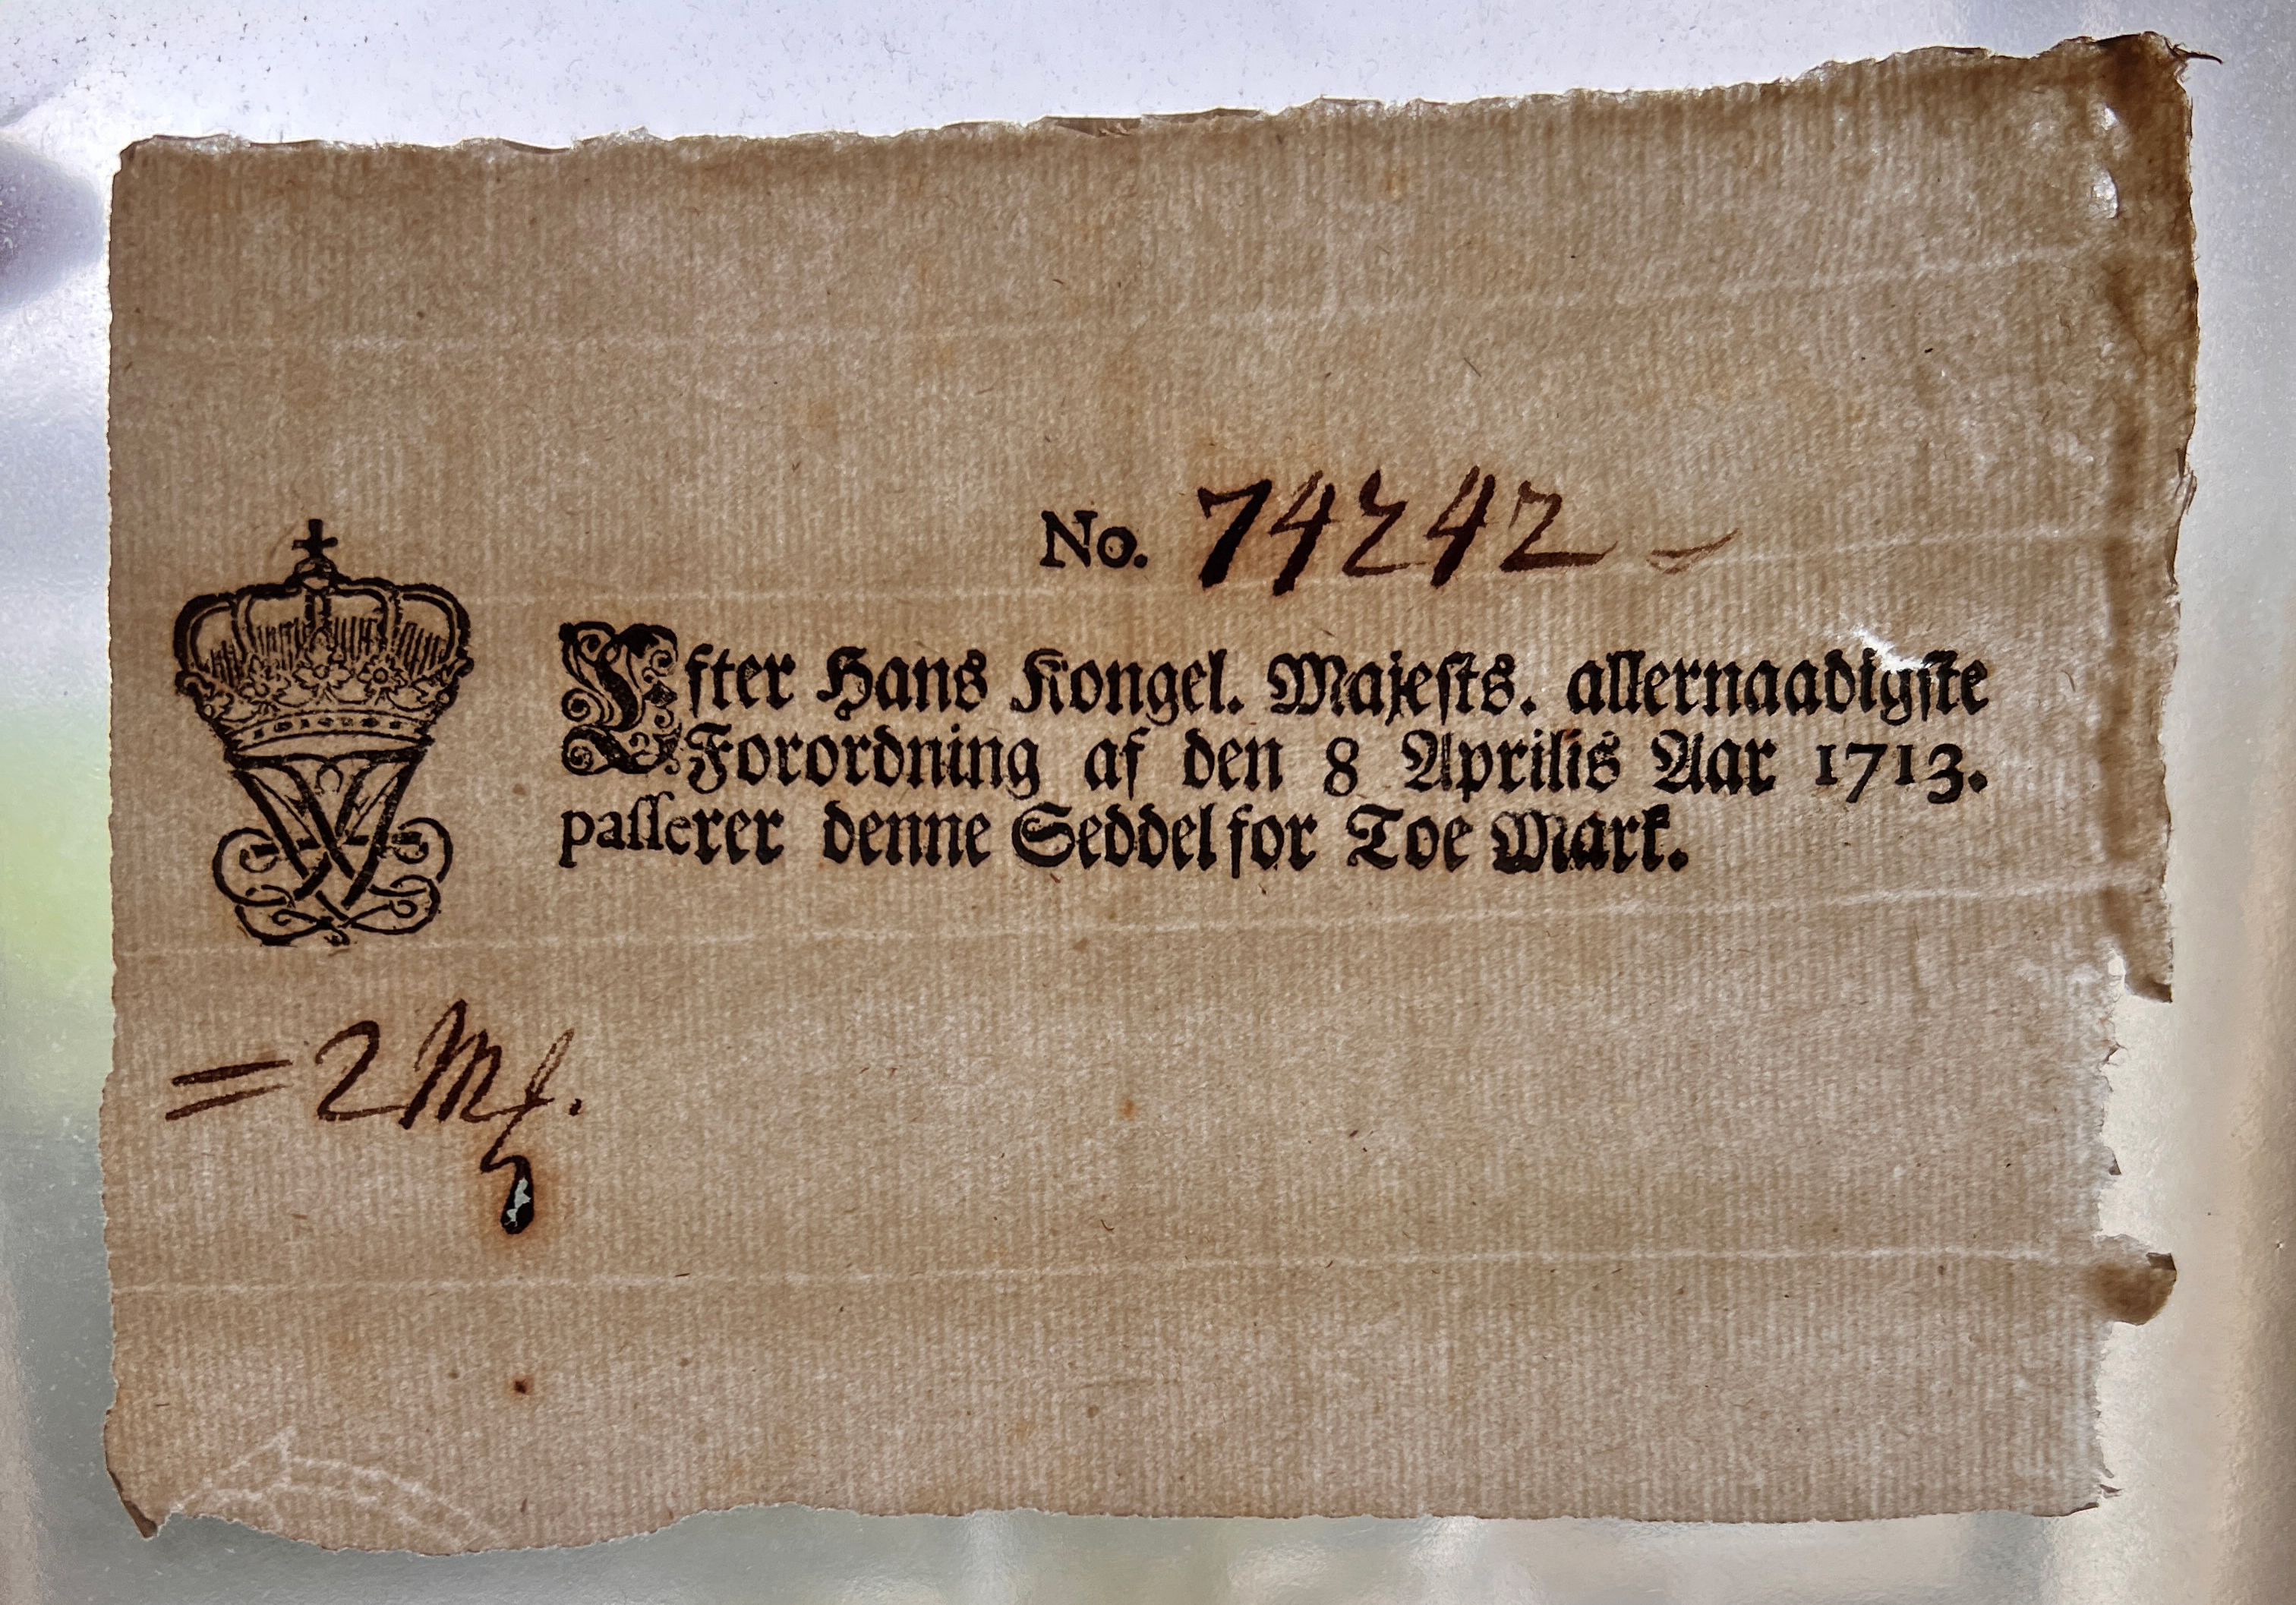 No. 74242
Efter Hans Kongel. Majests. allernaadigste
Forordning af den 8 Aprilis Aar 1713.
passerer denne Seddel for Toe Mark.
= 2 Mk.